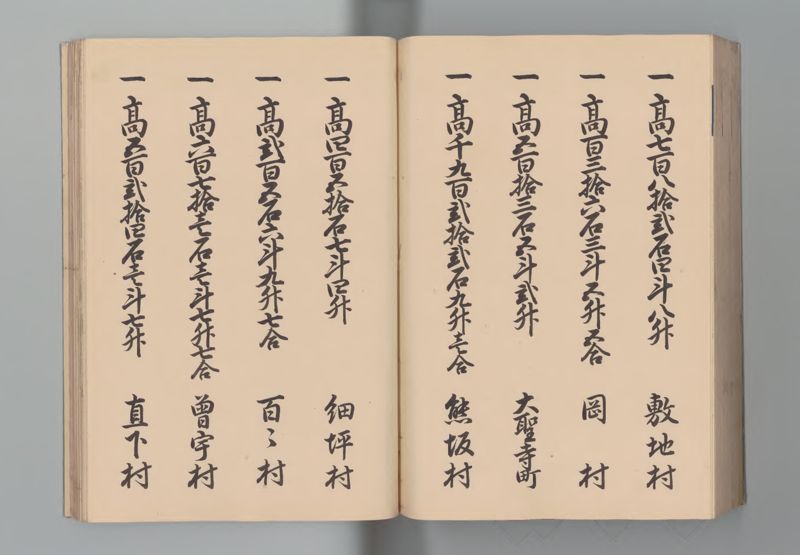 一高七百八拾弐石四斗八升 敷地村
一高百三拾六石三斗五升五合 岡村
一高五百拾三石五斗弐升 大聖寺町
一高千九百弐拾弐石九升壱合 熊坂村
一高四百五拾石七斗四升 細坪村
一高弐百五石六斗九升七合 百々村
一高六百七拾壱石壱斗七升七合 曽宇村
一高五百弐拾四石壱斗七升 直下村